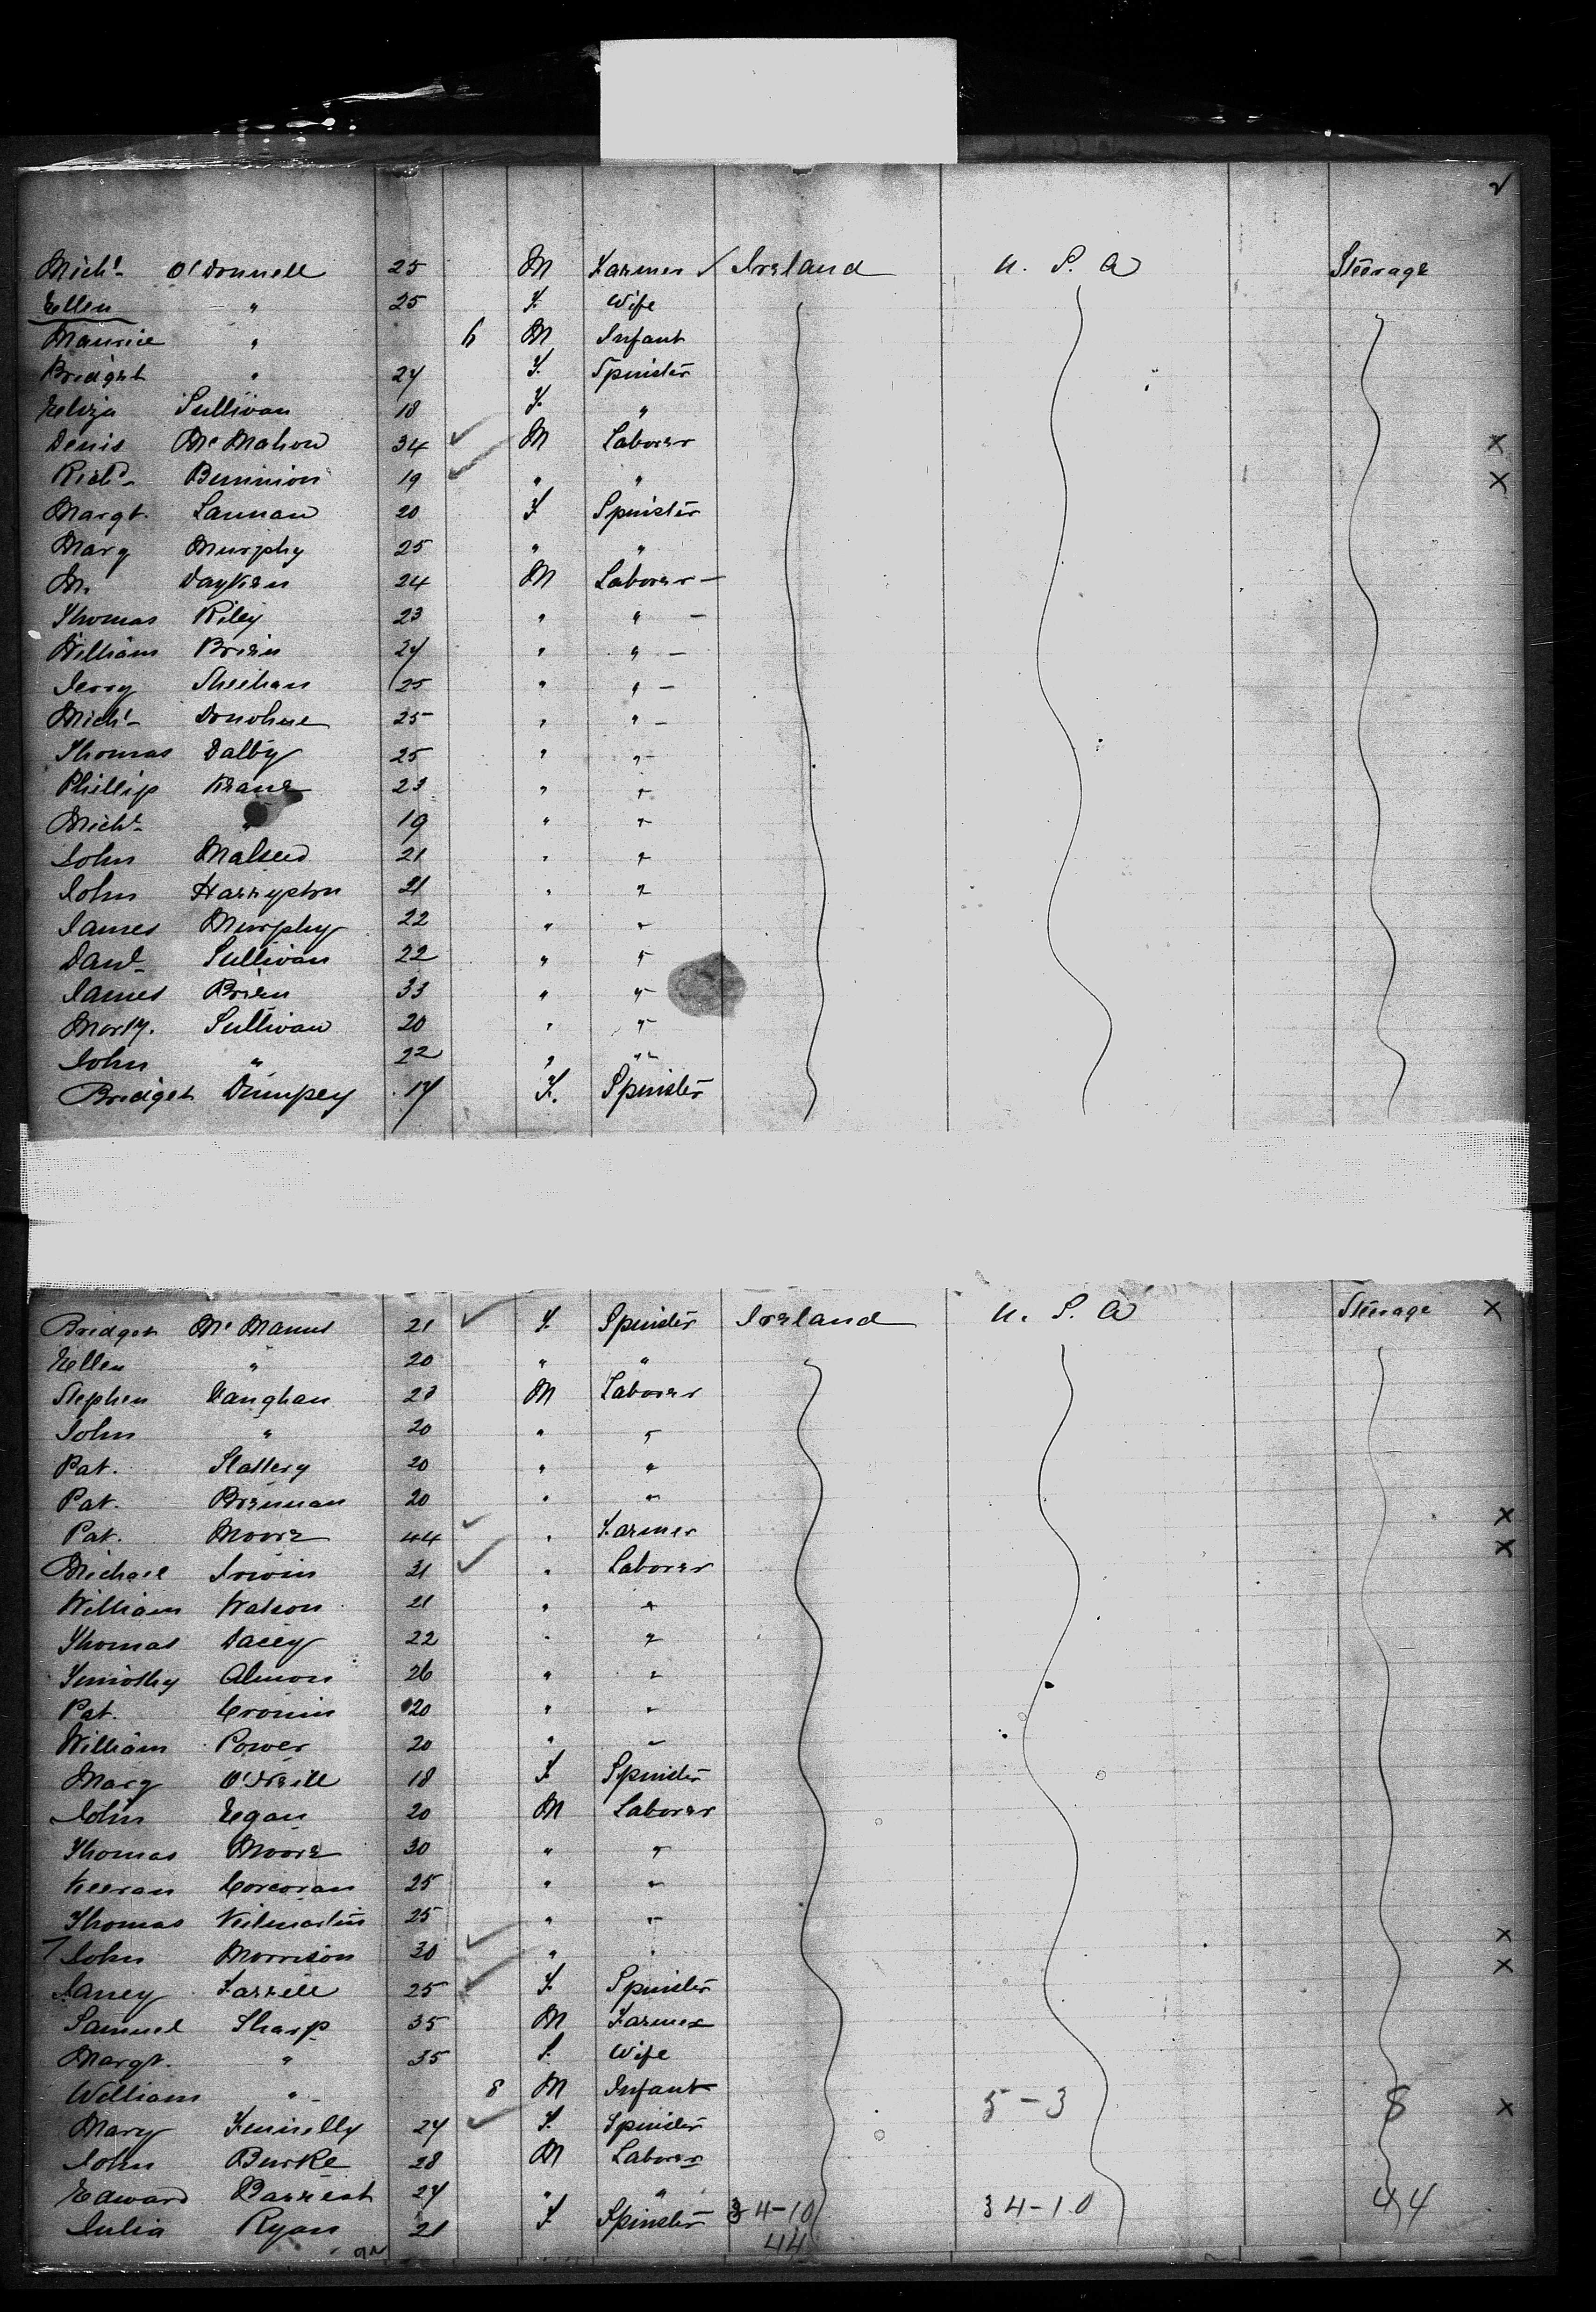 Michl O'Donnell 25 M Farmer / Ireland U. S. A Steerage
Ellen " 25 F. Wife
Maurice " 6 M Infant
Bridget " 24 F. Spinster
Eliza Sullivan 18 F. "
Denis McMahon 34 ✓ M Laborer X
Richd Binnion 19 ✓ " " X
Margt. Lannan 20 F Spinster
Mary Murphy 25 " "
M. 24 M Laborer –
Thomas Riley 23 " " –
William Brien 24 " " –
Jerry Sheehan 25 " " –
Michl Donohue 25 " " –
Thomas Dalby 25 " "
Phillip Keane 23 " "
Michl " 19 " "
John 21 " "
John 21 " "
James Murphy 22 " "
Danl Sullivan 22 " "
James Brien 33 " "
Morty. Sullivan 20 " "
John " 22 " "
Bridget Dempsey 17 F. Spinster
Bridget McManus 21 ✓ F. Spinster Ireland U. S. A Steerage X
Ellen " 20 " "
Stephen Vaughan 23 M Laborer
John " 20 " "
Pat. Slattery 20 " "
Pat. Brennan 20 " "
Pat. Moore 44 ✓ " Farmer X
Michael Irwin 21 ✓ " Laborer X
William Watson 21 " "
Thomas Dacey 22 " "
Timothy Almon 26 " "
Pat. Cronin 20 " "
William Power 20 " "
Mary O'Neill 18 F Spinster
John Egan 20 M Laborer
Thomas Moore 30 " "
Keeran Corcoran 25 " "
Thomas Kilmartin 25 " "
John Morrison 30 ✓ " " X
Janey Farrell 25 ✓ F Spinster X
Samuel Sharp 35 M Farmer
Margt. " 35 F. Wife
William " 8 M Infant 5-3 8
Mary Fennelly 24 ✓ F. Spinster X
John Burke 28 M Laborer
Edward Barrett 24 " "
Julia Ryan 21 F Spinster 34-10 34-10 44
44